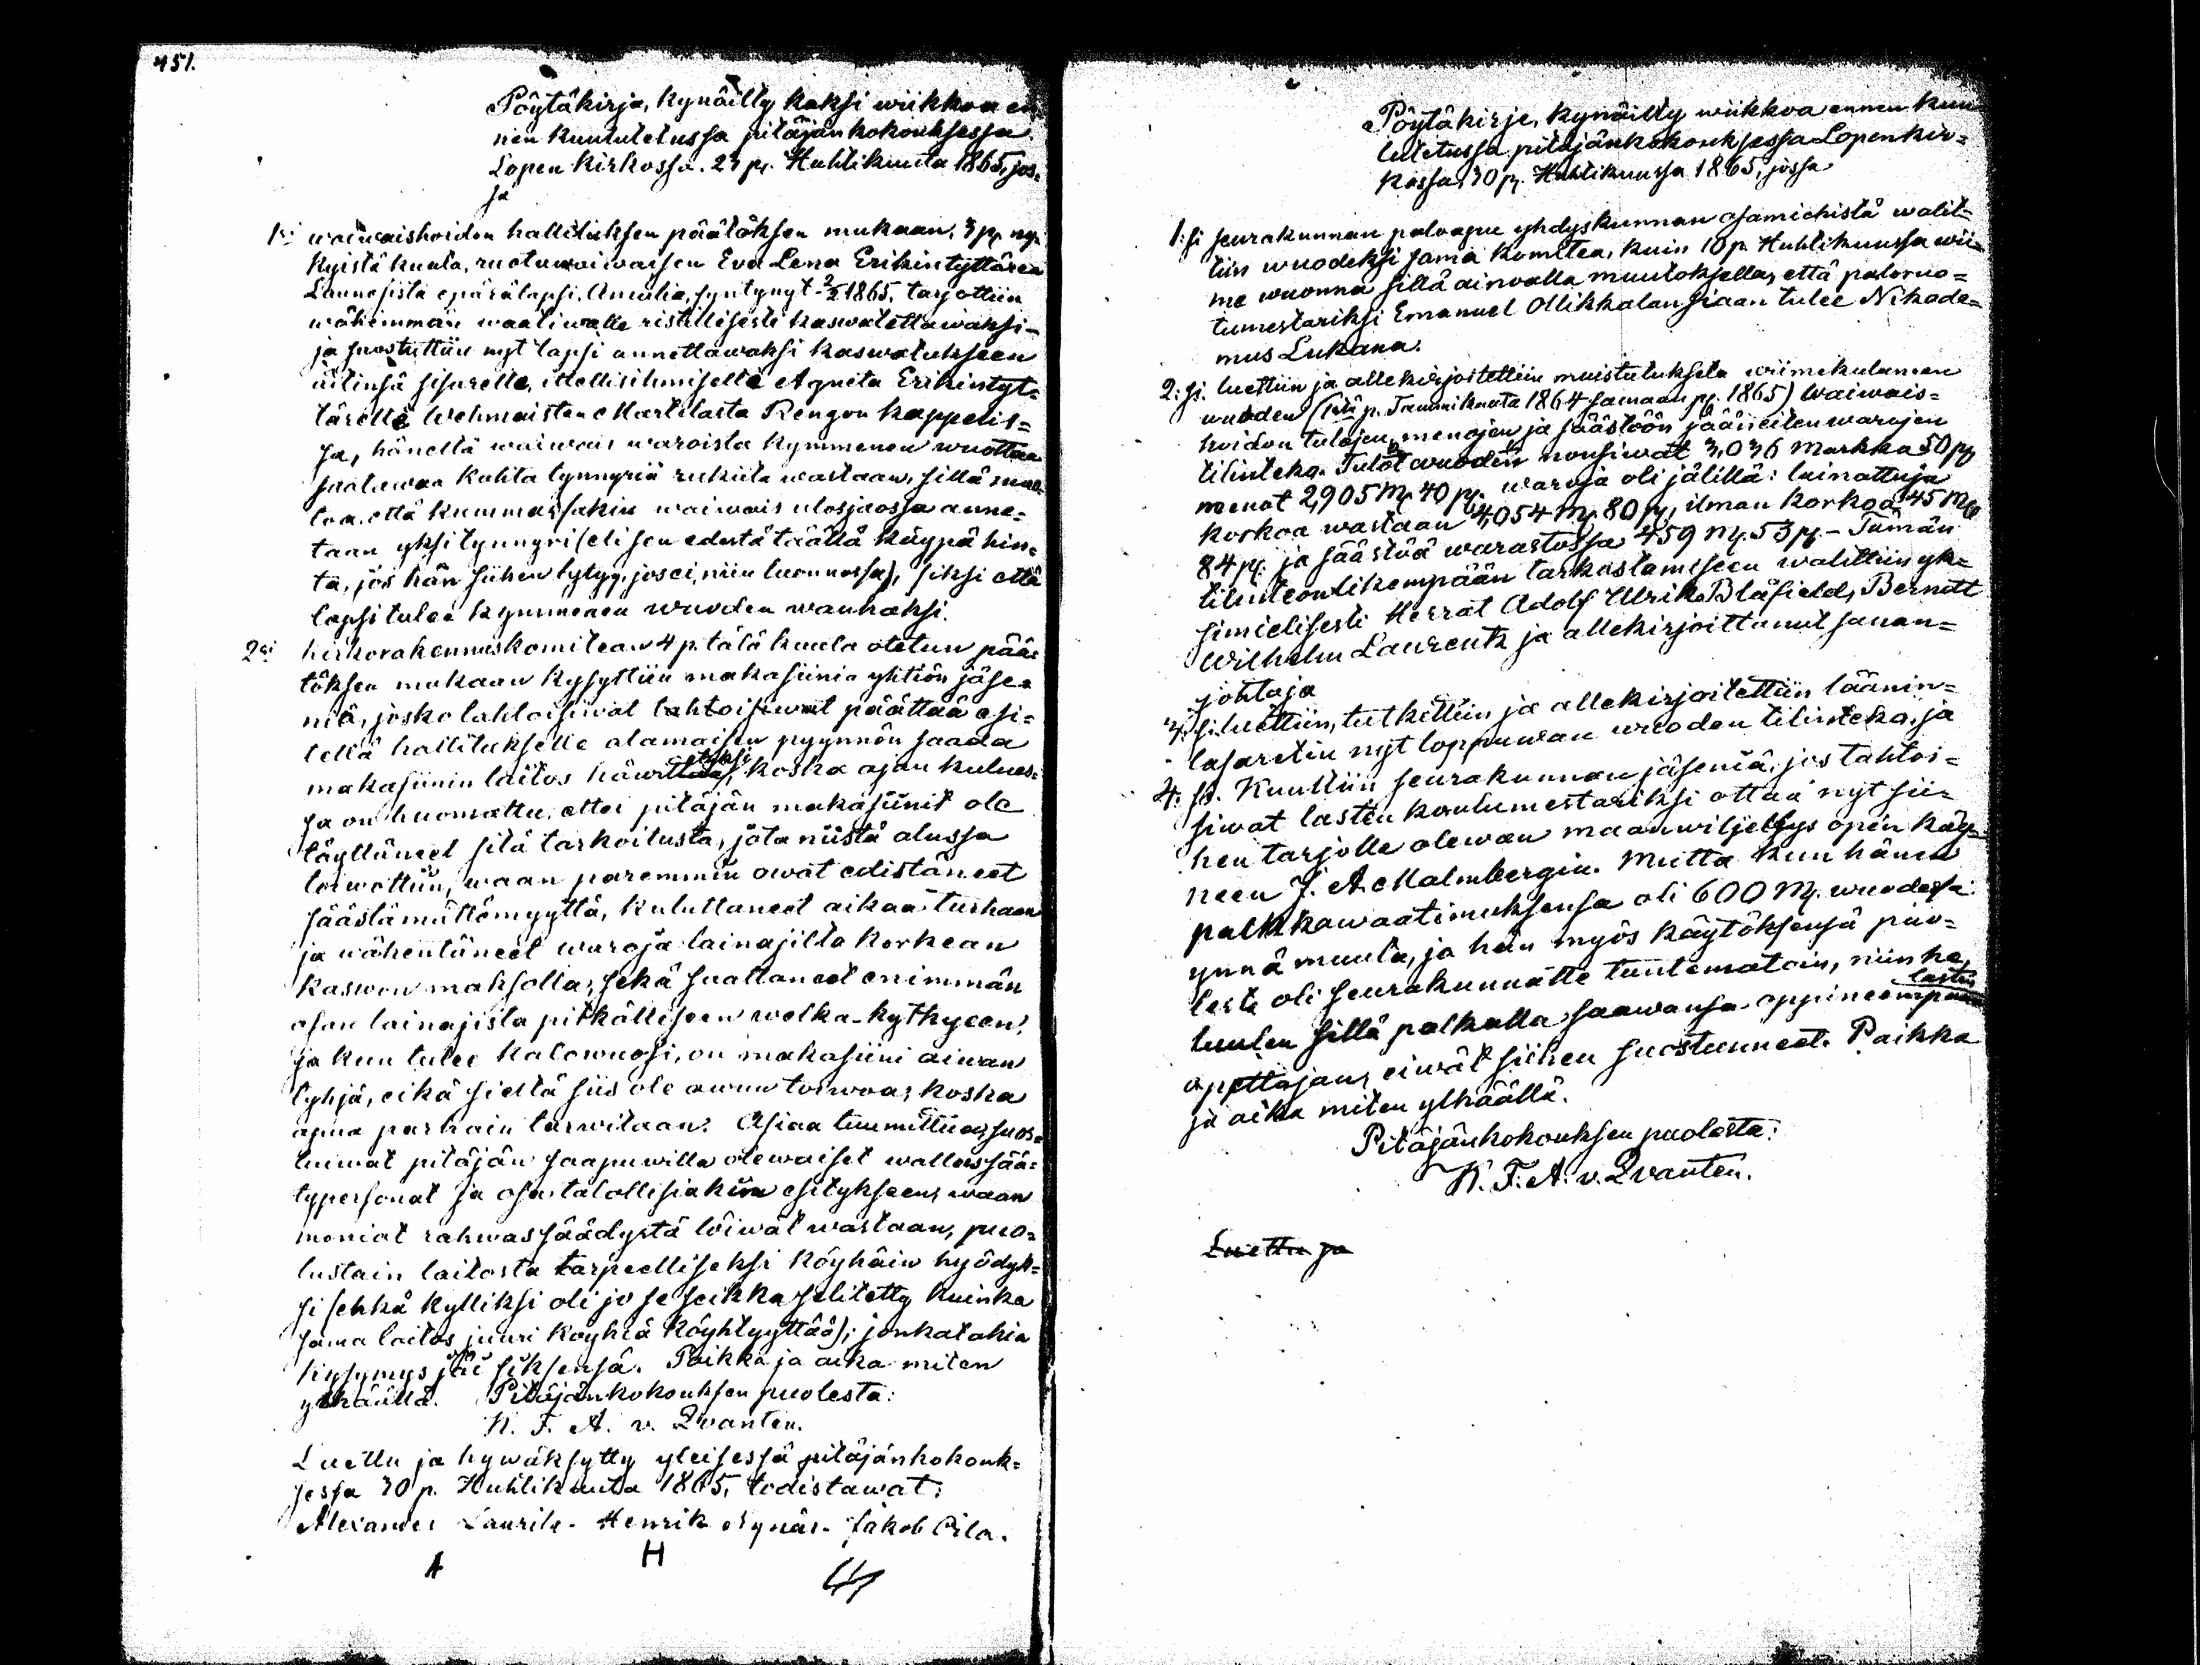 451.
Pöytäkirja, kynäilty kaksi wiikkoa en
nen kuulutetussa pitäjänkokouksessa
Lopen kirkossa. 23 p. Huhtikuuta 1865, jos-
sa
1si waiwaishoidon hallituksen päätöksen mukaan, 3 p. ny-
kyistä kuuta, ruotuwaiwaisen Eva Lena Erikintyttären
Launosista epärälapsi, Amalia, syntynyt 2/2 1865, tarjottiin
wähimmän waatiwalle ristillisesti kaswatettawaksi -
ja suostuttiin nyt lapsi annettawaksi kaswatukseen
äitinsä sisarelle, itellisihmiselle Agneta Erikintyt=
tärelle Wehmaisten Marttilasta Rengon kappelis=
sa, hänellä waiwais waroista kymmenen wuotta
saatawan kahta tynnyriä rukiita wastaan, sillä muo-
toa. että kummassakin waiwais ulosjaossa anne=
taan yksi tynnyri (eli sen edestä täällä käypä hin=
ta, jos hän siihen tytyy, jos ei, niin luonnossa), siksi että
lapsi tulee kymmenen wuoden wanhaksi.
2si kirkorakennuskomitean 4 p. tätä kuuta otetun pää=
töksen mukaan kysyttiin makasiinin yhtiön jäse=
niä, josko tahtoisiwat tahtoisiwat päättää esi=
tellä hallitukselle alamaisen pyynnön saada
makasiinin laitos häwitetyksi, koska ajan kulues=
sa on huomattu, ettei pitäjän makasiinit ole
täyttäneet sitä tarkoitusta, jota niistä alussa
toiwottiin, waan paremmin owat edistäneet
säästämättömyyttä, kuluttaneet aikaa turhaan
ja wähentäneet waroja lainajilta korkean
kaswon maksolla, sekä saattaneet enimmän
osan lainajista pitkälliseen welka-kytkyeen,
ja kun tulee katowuosi, on makasiini aiwan
tyhjä, eikä sieltä siis ole awun toiwoa, koska
apua parhain tarwitaan. Asiaa tuumittua, suos=
tuimat pitäjän saapuwilla olewaiset wallassää=
typersonat ja osa talollisiakin esitykseen, waan
moniat rahwassäädystä löiwät wastaan, puo=
lustain laitosta tarpeelliseksi köyhäin hyödyk=
si (ehkä kylliksi oli jo se seikka selitetty kuinka
sama laitos juuri köyhiä köyhtyyttää); jonkatähen
kysymys jäi siksensä. Paikka ja aika miten
ylhäällä. Pitäjänkokouksen puolesta:
K. F. A. v. Qvanten.
Luettu ja hywäksytty yleisessä pitäjänkokouk=
sessa 30 p. Huhtikuuta 1865, todistawat:
Alexander Laurila. Henrik Nynäs. Jakob Oila.
A H
Pöytäkirja, kynäilty wiikkoa ennen kuu
lutetussa pitäjänkokouksessa Lopen kir=
kossa, 30 p. Huhtikuussa 1865, jossa
1:si seurakunnan paloapu yhdyskunnan osamiehistä walit=
tiin wuodeksi sama komitea, kuin 10 p. Huhtikuussa wii=
me wuonna sillä ainoalla muutoksella, että paloruo=
tumestariksi Emanuel Ollikkalan siaan tulee Nikode=
mus Lukana.
2:si. luettiin ja allekirjoitettiin muistutuksita wiimekuluneen
wuoden (1stä p. Tammikuuta 1864 samaan p. 1865) waiwais=
hoidon tulojen, menojen ja säästöön jääneiten warojen
tilinteko. Tulot wuoden nousiwat 3,036 Markka 50 p,
menot 2,905 M. 40 p. waroja oli jälillä: lainattuja
korkoa wastaan 4,054 M. 80 p, ilman korkoa 45 M.
84 p. ja säästöä warastossa 459 M. 53 p. - Tämän
tilinteon likempään tarkastamiseen walittiin yk=
simielisesti Herrat Adolf Ulrik Blåfield, Berndt
Wilhelm Laurentz ja allekirjoittanut sanan=
johtaja
3. si. luettiin, tutkittiin ja allekirjoitettiin läänin=
lasaretin nyt loppuwan wuoden tilinteko, ja
4. si. Kuultiin seurakunnan jäseniä, jos tahtoi=
siwat lasten koulumestariksi ottaa nyt sii=
hen tarjolle olewan maanwiljelys opin käy=
neen J. A. Malmbergin. Mutta kun hänen
palkkawaatimuksensa oli 600 M. wuodessa
ynnä muuta, ja hän myös käytöksensä puo=
lesta oli seurakunnalle tuntematoin, niin he,
luulen sillä palkalla saawansa oppineemman lasten
opettajan, eiwät siihen suostunneet. Paikka
ja aika miten ylhäällä.
Pitäjänkokouksen puolesta:
K. F. A. v. Qvanten.
Luettu ja